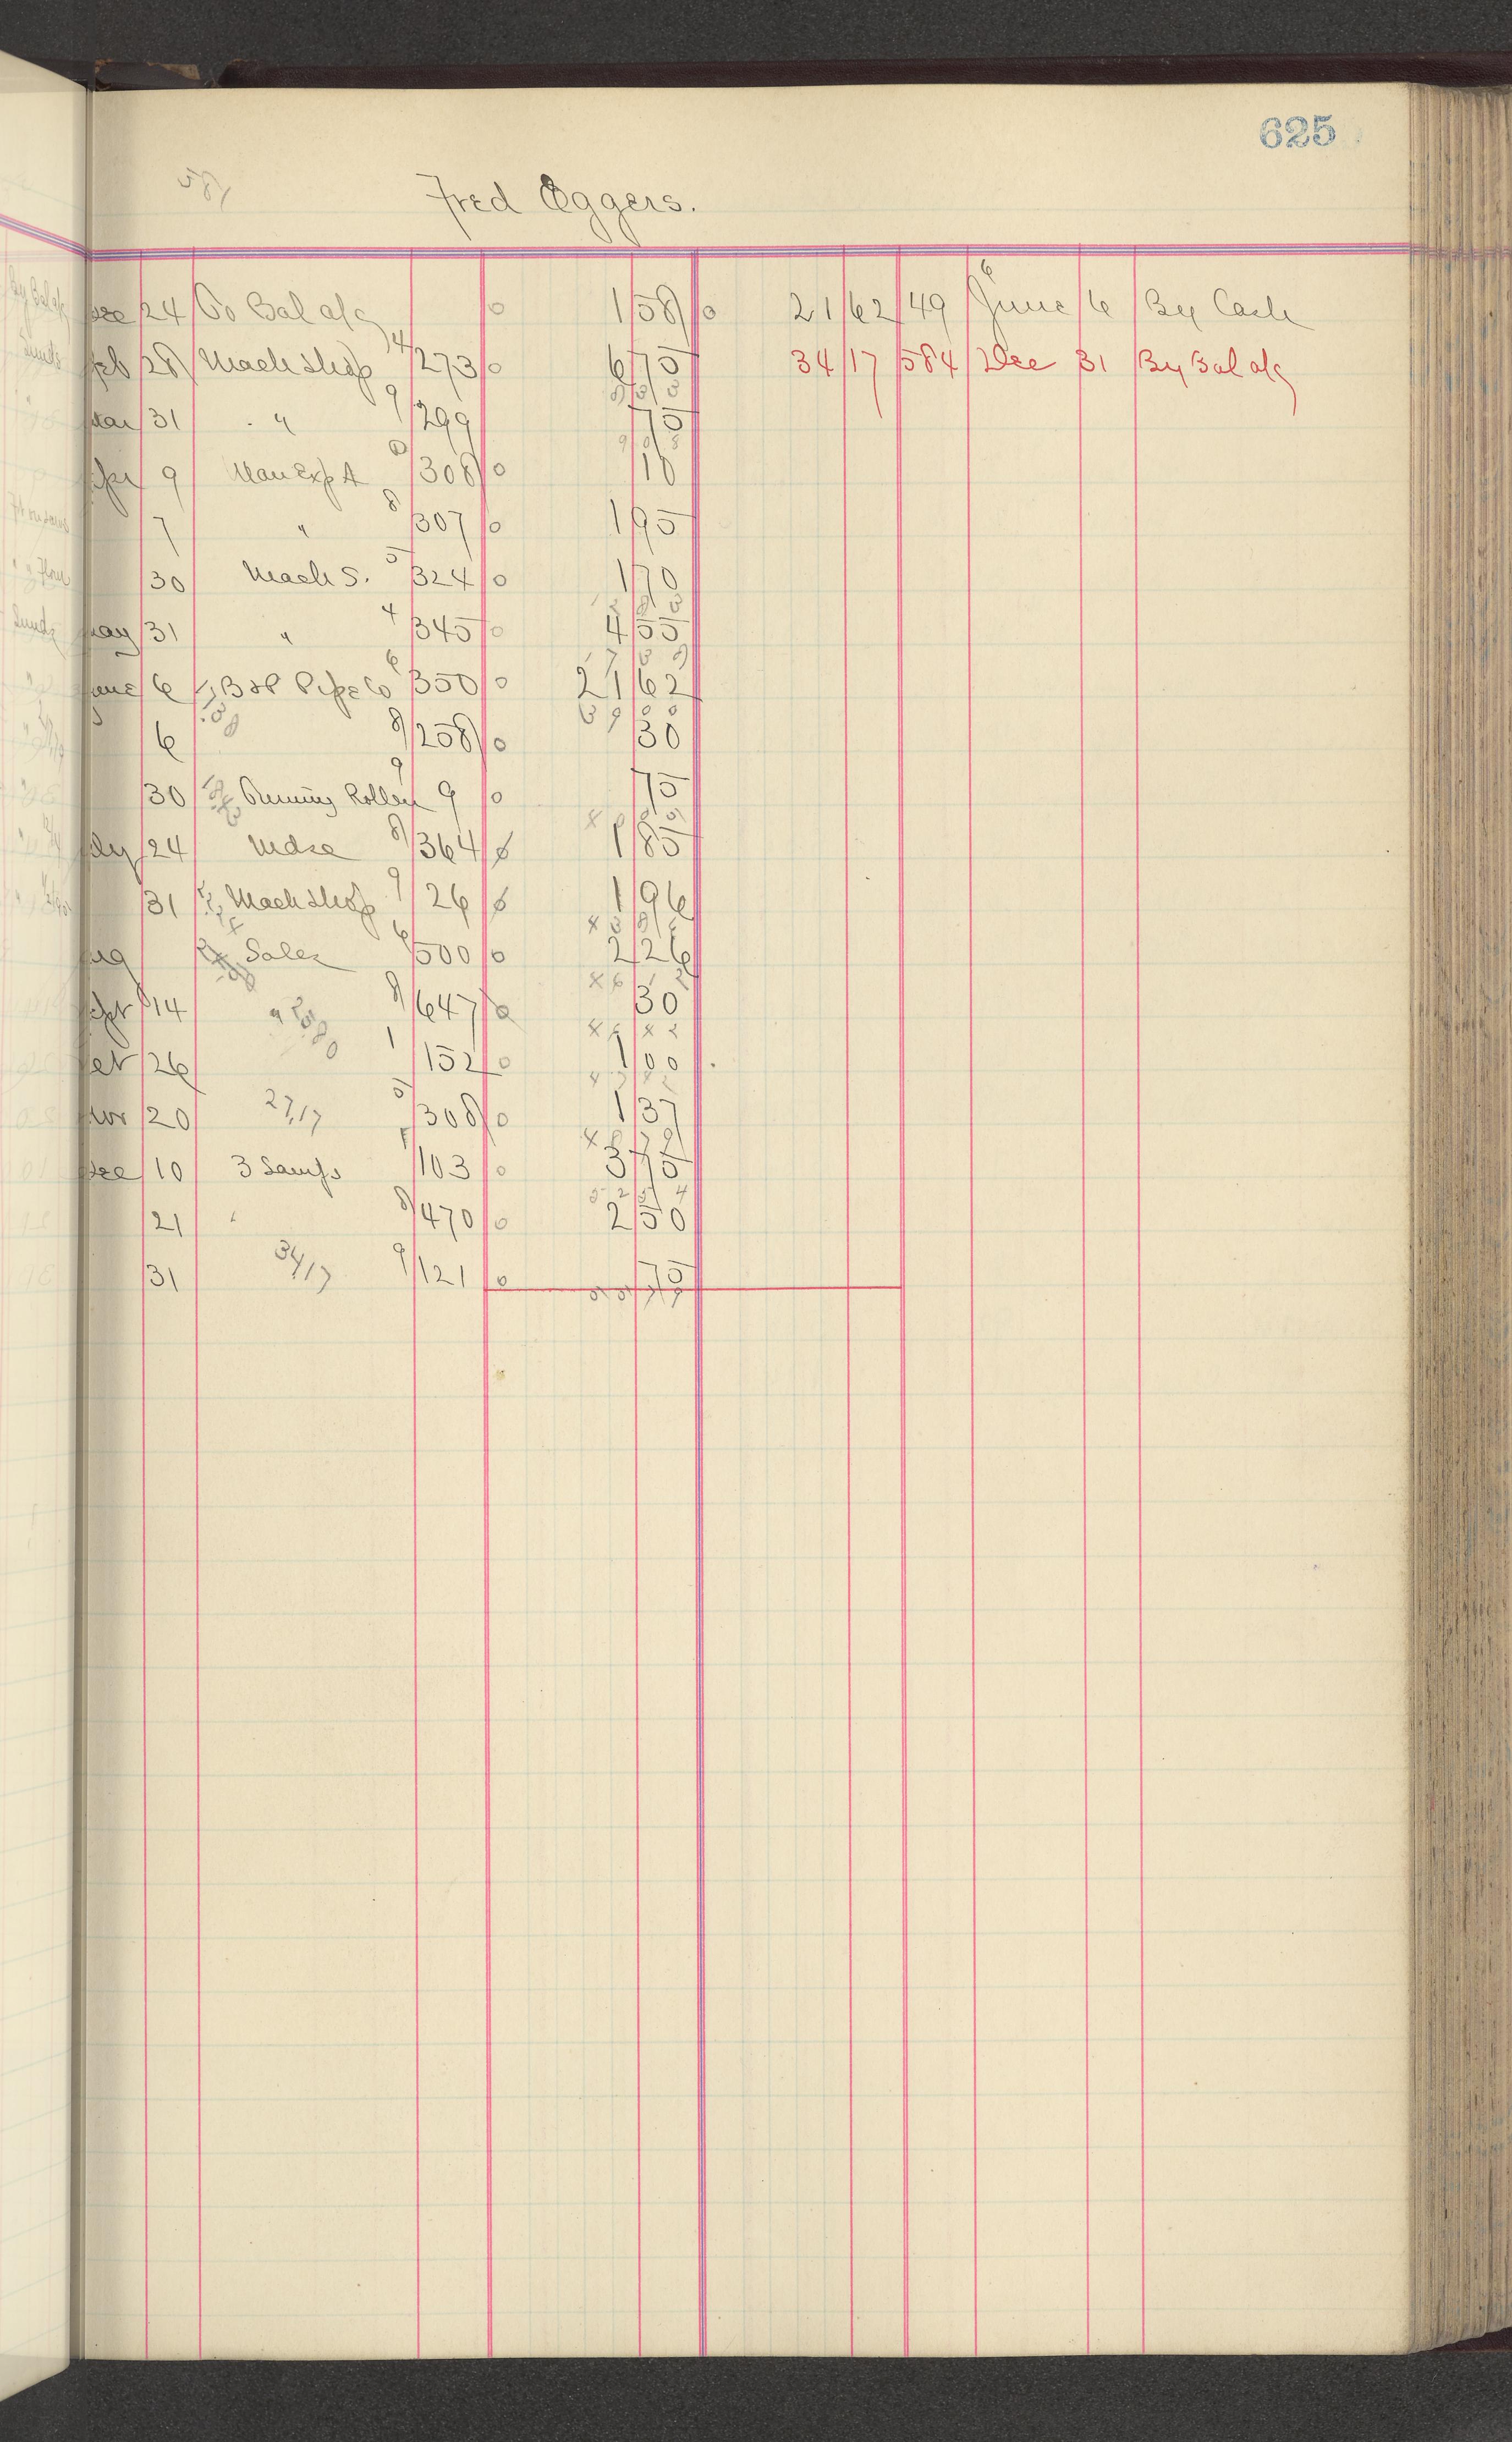 625
587
Fred Eggers.
Dec 24 To Bal a/c 0 1 58 0 21 62 49 June 6 By Cash
Feb 28 Mach Shop 4/273 0 6 75 34 17 584 Dec 31 By Bal a/c
Mar 31 " 9/299 75
Apr 9 Man Exp A 308 0 10
7 " 8/307 0 1 95
30 Mach S. 5/324 0 1 70
May 31 " 4/345 0 4 55
June 6 B & P Pipe Co 6/350 0 21 62
6 8/258 0 30
30 Running Roller 9 0 75
July 24 Mdse 8/364 0 1 85
31 Mach Shop 9/26 0 1 96
Aug Sales 6/500 0 2 26
Sept 14 " 8/647 0 30
Oct 26 1/152 0 1 00
Nov 20 27,17 5/308 0 1 37
Dec 10 3 Lamps 1/103 0 3 75
21 8/470 0 2 50
31 34/17 9/121 0 75
55 79